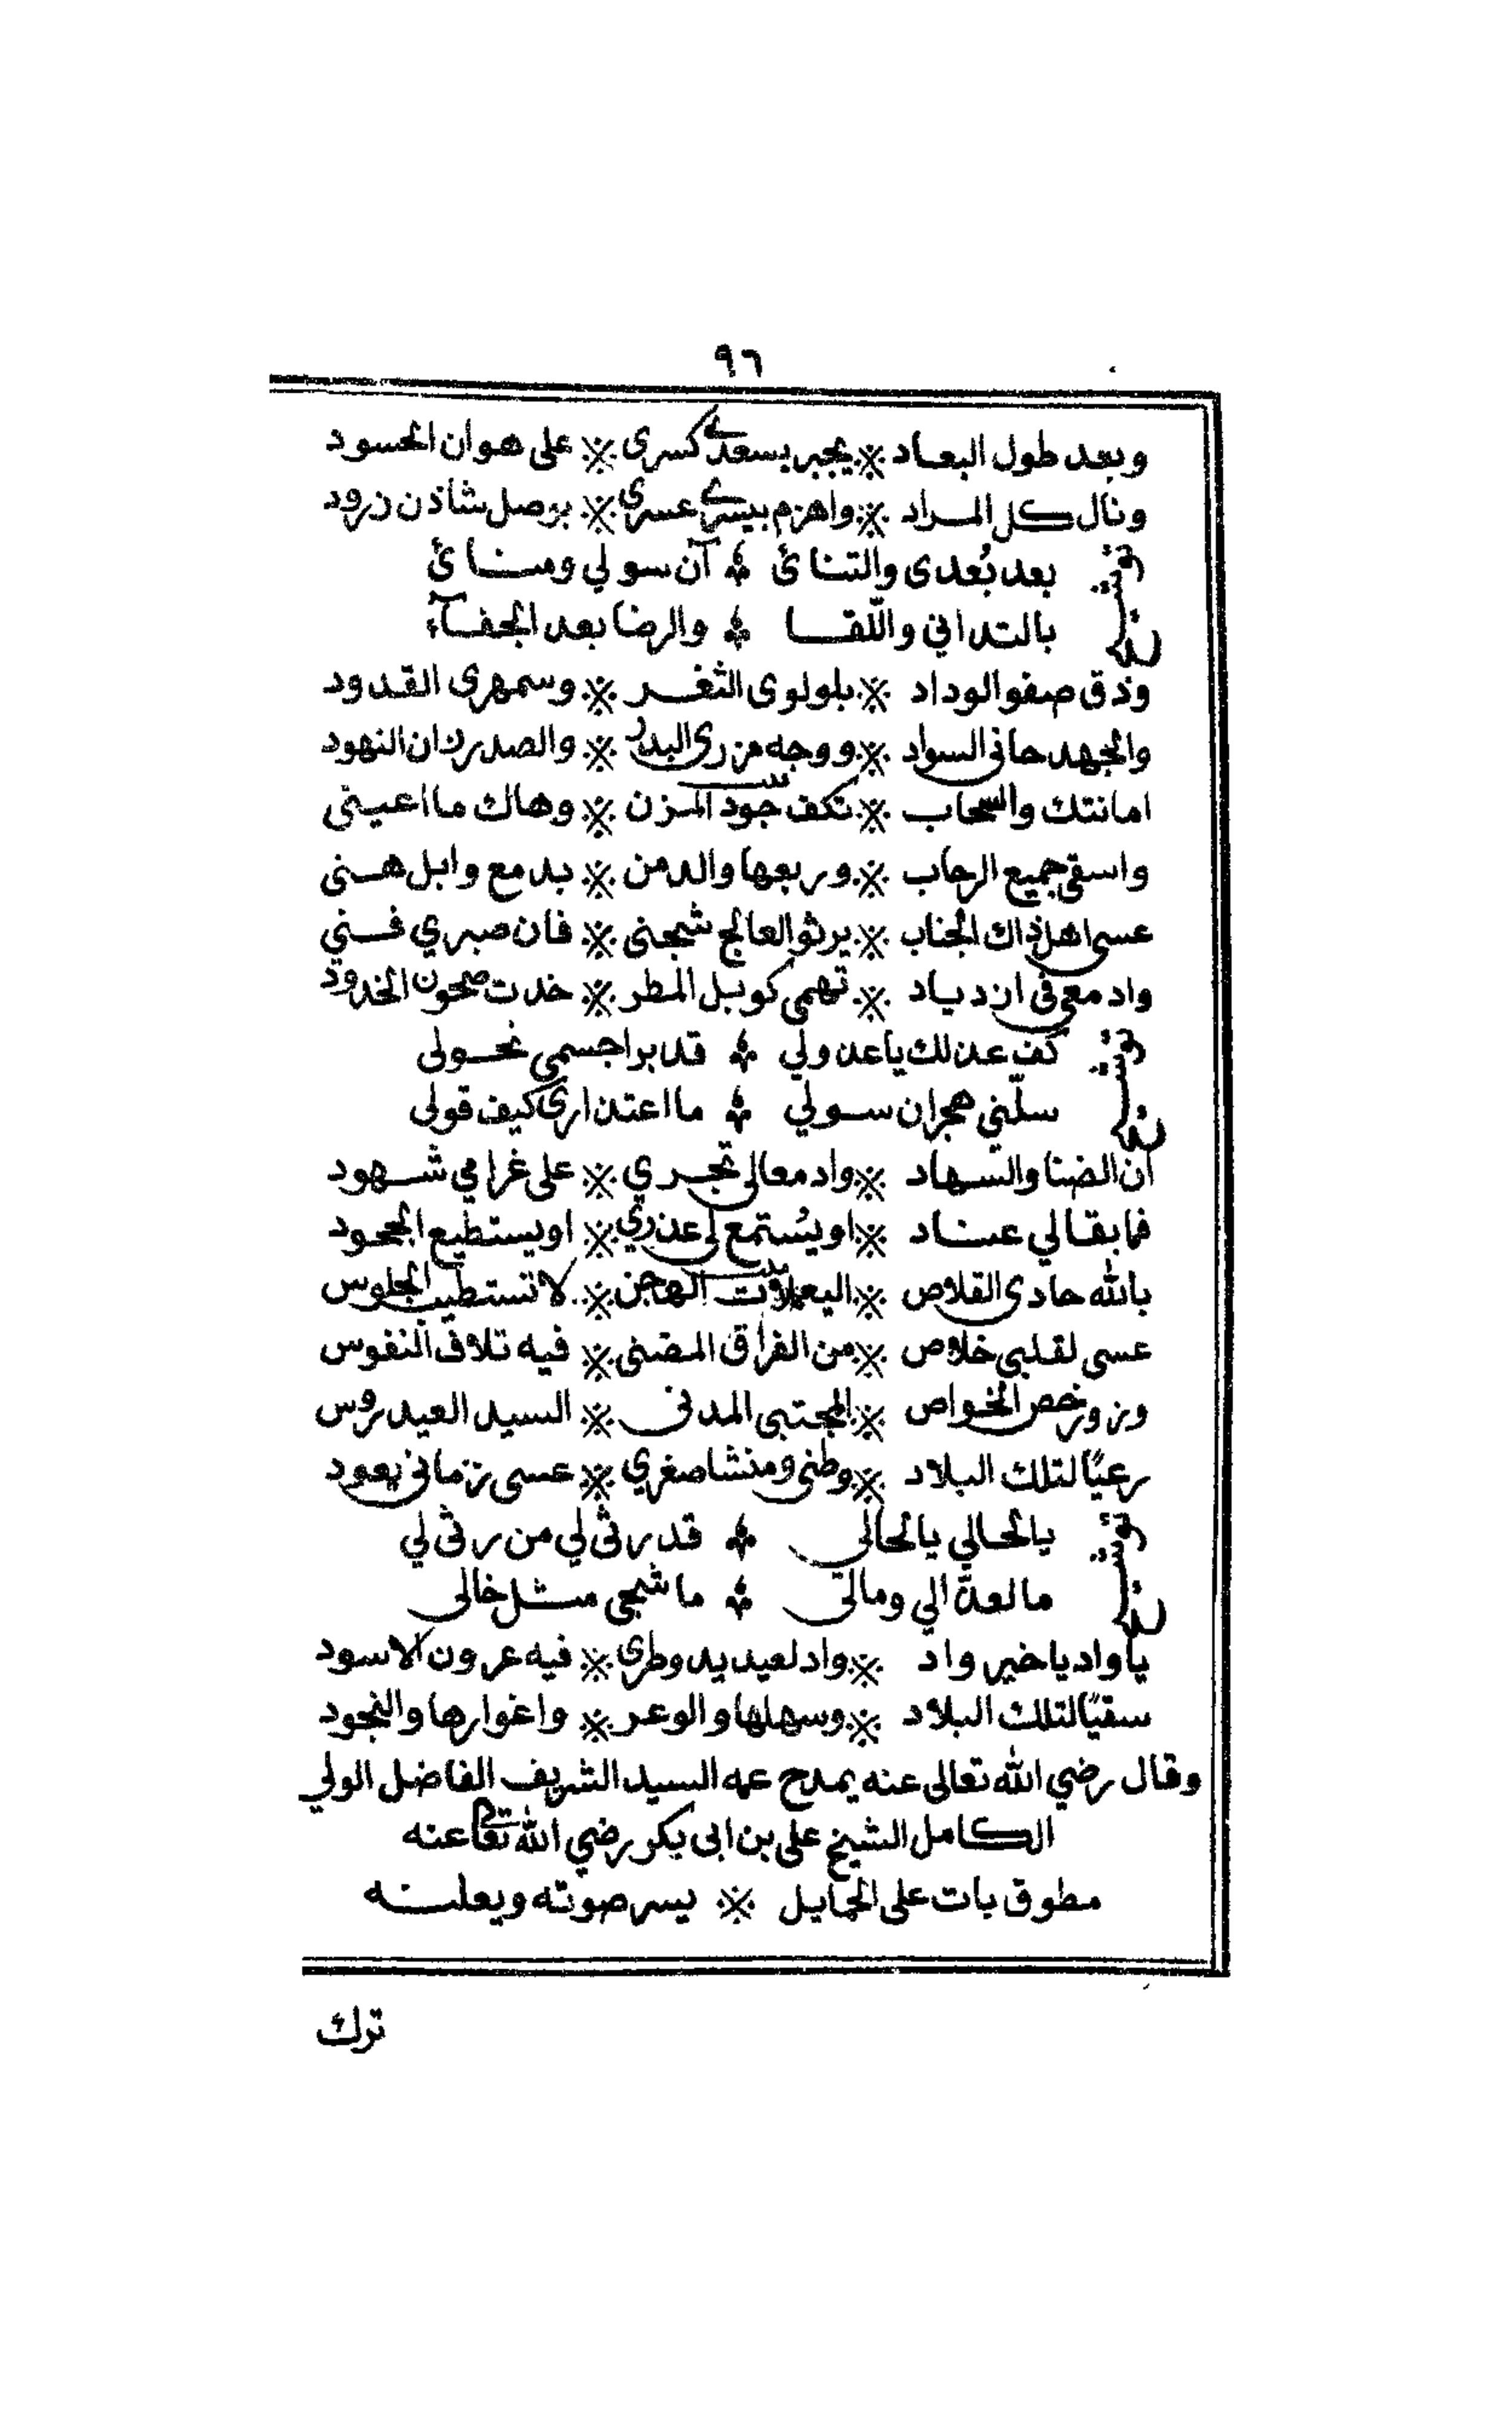 ٩٦
وبعد طول البعاد ※ يجبر بسعدي كسرى ※ على هوان الحسود
ونال كل المراد ※ واهزم بيسرى عسرى ※ بوصل شاذن زرود
بعد بُعدى والتنائ ﴿ آن سولي ومنائ
بالتداني واللّقا ﴿ والرضا بعد الجفآء
وذق صفو الوداد ※ بلولوى الثغر ※ وسمهرى القدود
والجهد حانى السواد ※ ووجه مزرى البدر ※ والصدر زان النهود
امانتك والسحاب ※ تكف جود المزن ※ وهاك ما اعينى
واسقى جميع الرحاب ※ وربعها والدمن ※ بدمع وابل هنى
عسى اهل ذاك الجناب ※ يرثو العالج شجنى ※ فان صبري فني
وادمعى فى ازدياد ※ تهمى كوبل المطر ※ خدت صحون الخدود
كف عذلك يا عذولي ﴿ قد برا جسمى نحولى
سلّني هجران سولي ﴿ ما اعتذارى كيف قولى
ان الضنا والسهاد ※ وادمعا لى تجري ※ على غرامي شهود
فما بقا لي عناد ※ او يُستمع لى عذري ※ او يستطيع الجحود
بالله حادى القلاص ※ اليعملات الهجن ※ لا تستطيب الجلوس
عسى لقلبي خلاص ※ من الفراق المضنى ※ فيه تلاف النفوس
وزور خص الخواص ※ المجتبى المدنى ※ السيد العيدروس
رعيًا لتلك البلاد ※ وطنى ومنشا صغري ※ عسى زمانى يعود
يا لحالي يا لحالى ﴿ قد رثى لي من رثى لي
ما لعذّالي ومالى ﴿ ما شجى مثل خالى
يا واد يا خير واد ※ واد لعيديد وطرى ※ فيه عرون الاسود
سقيًا لتلك البلاد ※ وسهلها والوعر ※ واغوارها والنجود
وقال رضي الله تعالى عنه يمدح عمه السيد الشريف الفاضل الولي
الكامل الشيخ على بن ابى بكر رضي الله تعا عنه
مطوق بات على الخمايل ※ يسر صوته ويعلنه
ترك